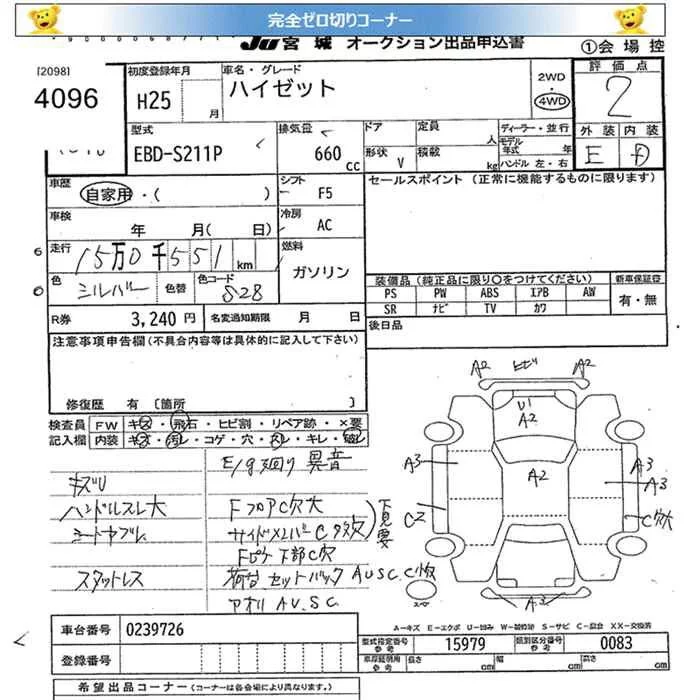 完全ゼロ切りコーナー
JU 宮城 オークション出品申込書
①会場控
[2098]
4096
初度登録年月
H25
月
車名・グレード
ハイゼット
2WD
・
4WD
評価点
2
型式
EBD-S211P
排気量
660
cc
ドア
形状
V
定員
人
積載
kg
ディーラー・並行
モデル年式
年
ハンドル 左・右
外装 内装
E D
車歴
自家用・( )
シフト
F5
セールスポイント (正常に機能するものに限ります)
車検
年 月( 日)
冷房
AC
走行
15万0千551 km
燃料
ガソリン
色
シルバー
色替
色コード
S28
装備品 (純正品に限り○をつけてください)
新車保証書
PS PW ABS エアB AW
SR ナビ TV カワ
有・無
R券
3,240 円
名変通知期限 月 日
後日品
注意事項申告欄 (不具合内容等は具体的に記入して下さい)
修復歴 有 〔箇所 〕
検査員 FW キズ・飛石・ヒビ割・リペア跡・×要
記入欄 内装 キズ・汚レ・コゲ・穴・スレ・キレ・破レ
E/g廻り異音
キズU
ハンドルスレ大
FフロアC穴大
シートヤブレ
サイドメンバーC多数穴
下見要
Fピラ下部C穴
スタットレス
荷台セットバックAUSC.C小穴
アオリ AU.SC
A2 ヒビ A2
U1
A2
A3
A2
A3
A3
C2
C穴大
A3
A-キズ E-エクボ U-凹み W-補修跡 S-サビ C-腐食 XX-交換済
車台番号
0239726
型式指定番号
参考
15979
類別区分番号
参考
0083
登録番号
車庫証明用
参考
長さ cm
幅 cm
高さ cm
希望出品コーナー (コーナーは各会場により異なります。)